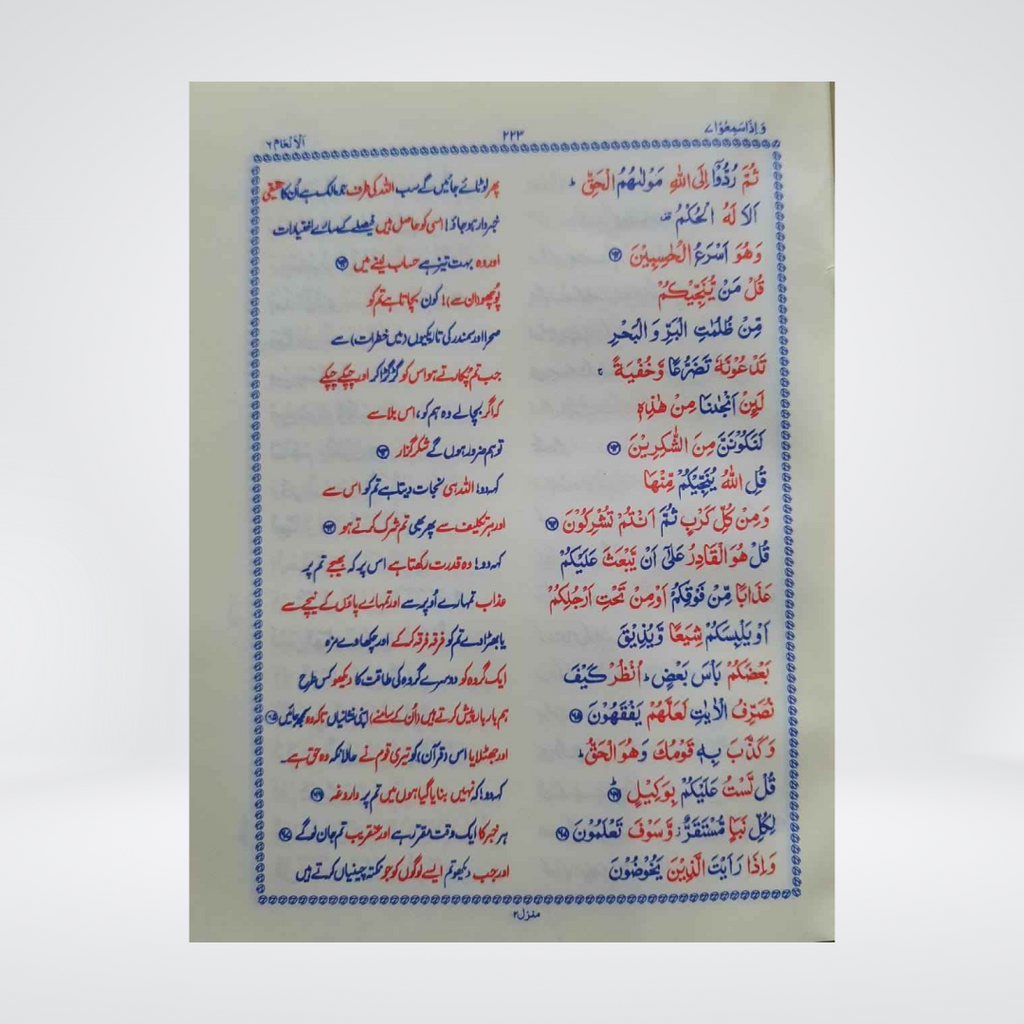 وَاِذَا سَمِعُوْا ٧
٢٢٣
اَلْاَنْعَام ٦
ثُمَّ رُدُّوْٓا اِلَى اللّٰهِ مَوْلٰىهُمُ الْحَقِّ ؕ
اَلَا لَهُ الْحُكْمُ ۫
وَهُوَ اَسْرَعُ الْحٰسِبِيْنَ ﴿٦٢﴾
قُلْ مَنْ يُّنَجِّيْكُمْ
مِّنْ ظُلُمٰتِ الْبَرِّ وَ الْبَحْرِ
تَدْعُوْنَهٗ تَضَرُّعًا وَّخُفْيَةً ۚ
لَىِٕنْ اَنْجٰىنَا مِنْ هٰذِهٖ
لَنَكُوْنَنَّ مِنَ الشّٰكِرِيْنَ ﴿٦٣﴾
قُلِ اللّٰهُ يُنَجِّيْكُمْ مِّنْهَا
وَمِنْ كُلِّ كَرْبٍ ثُمَّ اَنْتُمْ تُشْرِكُوْنَ ﴿٦٤﴾
قُلْ هُوَ الْقَادِرُ عَلٰٓى اَنْ يَّبْعَثَ عَلَيْكُمْ
عَذَابًا مِّنْ فَوْقِكُمْ اَوْ مِنْ تَحْتِ اَرْجُلِكُمْ
اَوْ يَلْبِسَكُمْ شِيَعًا وَّيُذِيْقَ
بَعْضَكُمْ بَاْسَ بَعْضٍ ؕ اُنْظُرْ كَيْفَ
نُصَرِّفُ الْاٰيٰتِ لَعَلَّهُمْ يَفْقَهُوْنَ ﴿٦٥﴾
وَكَذَّبَ بِهٖ قَوْمُكَ وَهُوَ الْحَقُّ ؕ
قُلْ لَّسْتُ عَلَيْكُمْ بِوَكِيْلٍ ﴿٦٦﴾
لِكُلِّ نَبَاٍ مُّسْتَقَرٌّ ؗ وَّسَوْفَ تَعْلَمُوْنَ ﴿٦٧﴾
وَاِذَا رَاَيْتَ الَّذِيْنَ يَخُوْضُوْنَ
پھر لوٹائے جائیں گے سب اللہ کی طرف جو مالک ہے اُن کا حقیقی
خبردار ہو جاؤ! اسی کو حاصل ہیں فیصلے کے سارے اختیارات
اور وہ بہت تیز ہے حساب لینے میں ﴿٦٢﴾
پُوچھو (ان سے)! کون بچاتا ہے تم کو
صحرا اور سمندر کی تاریکیوں (میں خطرات) سے
جب تم پُکارتے ہو اس کو گڑگڑا کر اور چپکے چپکے
کہ اگر بچالے وہ ہم کو، اس بلا سے
تو ہم ضرور ہوں گے شکر گزار ﴿٦٣﴾
کہہ دو! اللہ ہی نجات دیتا ہے تم کو اس سے
اور ہر تکلیف سے پھر بھی تم شرک کرتے ہو ﴿٦٤﴾
کہہ دو! وہ قدرت رکھتا ہے اس پر کہ بھیجے تم پر
عذاب تمہارے اُوپر سے اور تمہارے پاؤں کے نیچے سے
یا بھڑا دے تم کو فرقہ فرقہ کر کے اور چکھا دے مزہ
ایک گروہ کو دوسرے گروہ کی طاقت کا دیکھو کس طرح
ہم بار بار پیش کرتے ہیں (اُن کے سامنے) اپنی نشانیاں تاکہ وہ سمجھ جائیں ﴿٦٥﴾
اور جھٹلایا اس (قرآن) کو تیری قوم نے حالانکہ وہ حق ہے۔
کہہ دو! کہ نہیں بنایا گیا ہوں میں تم پر داروغہ ﴿٦٦﴾
ہر خبر کا ایک وقت مقرر ہے اور عنقریب تم جان لو گے ﴿٦٧﴾
اور جب دیکھو تم ایسے لوگوں کو جو نکتہ چینیاں کرتے ہیں
منزل ٢